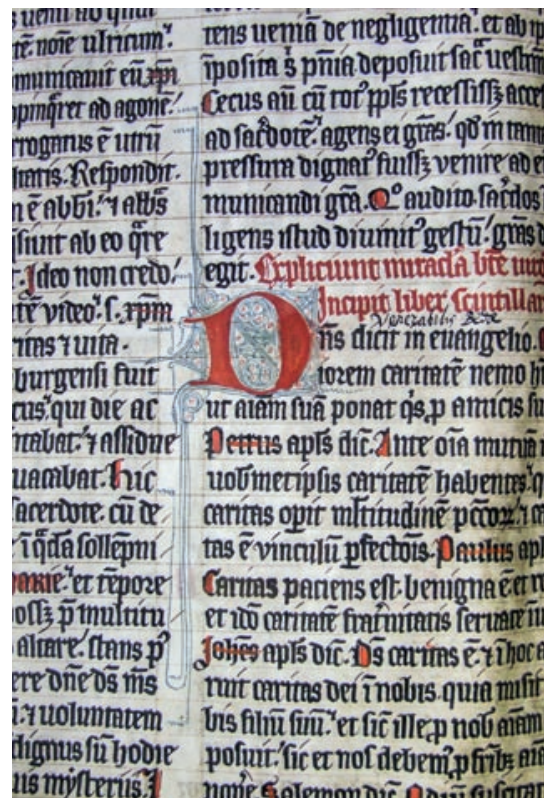 s uenit ad
tē. noīe ulricum.
municauit eū xpi
opinq̄ret ad agonē.
rrogatus ē utrū
Respondit.
n ē ⁊ albꝰ
siuit ab eo q̄re
t. Ideo non credo.
tē video. s. xpm
ritas ⁊ uita.
burgensi fuit
cus. qui die ac
ntabat. ⁊ assidue
uacabat. Hic
acerdote. cū de
ī q̄da sollēpni
marie. et tēpore
ossꝫ p̄ multitu
altare. stans p̄
ere dn̄e ds̄ ms̄
i. ⁊ uoluntatem
dignus sū hodie
us mysteriis. I
tens ueniā de negligentia. et ab ip
īposita s̄ pn̄ia deposuit sac̄ uestim
Cecus aū cū tot ppl̄s recessissꝫ acce
ad sac̄dotē. agens ei gr̄as. qd̄ in tanta
pressura dignatꝰ fuissꝫ venire ad e
municandi gr̄a. Qͦ audito. sac̄dos
ligens istud diuinitꝰ gestū. gr̄as d
egit. Expliciunt miracl̄a bt̄e uirg
Incipit liber scintillar
Venerabilis Bede
Dn̄s dicit in euangelio.
iorem caritatē nemo h
ut aīam suā ponat qͥs ꝓ amicis su
Petrus apl̄s dic̄. Ante oīa mutuā
uobmetipsis caritatē habentes. q
caritas opit ml̄titudinē pccōꝝ. ⁊ ca
tas ē vinculū ꝑfectōis. Paulus apl̄
Caritas patiens est. benigna ē. et re
et iō caritatē frat̄nitatis seruate in
Joh̄es apl̄s dic̄. Ds̄ caritas ē. ⁊ ī hoc a
ruit caritas dei ī nobis. quia misit
bis filiū suū. et sic ille ꝓ nob̄ aīam
posuit. sic et nos debemꝰ ꝓ frībꝫ aīa
none Salemon dic̄. Odiū suscitat